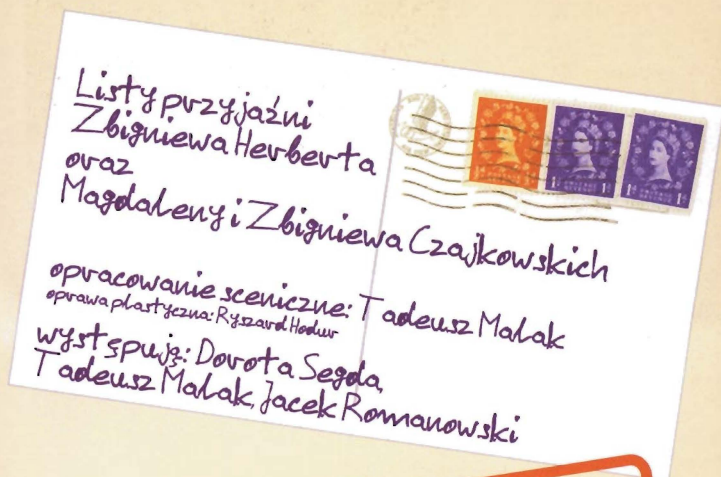 Listy przyjaźni
Zbigniewa Herberta
oraz
Magdaleny i Zbigniewa Czajkowskich
opracowanie sceniczne: Tadeusz Malak
oprawa plastyczna: Ryszard Hodur
występują: Dorota Segda,
Tadeusz Malak, Jacek Romanowski
1D
1D
1D